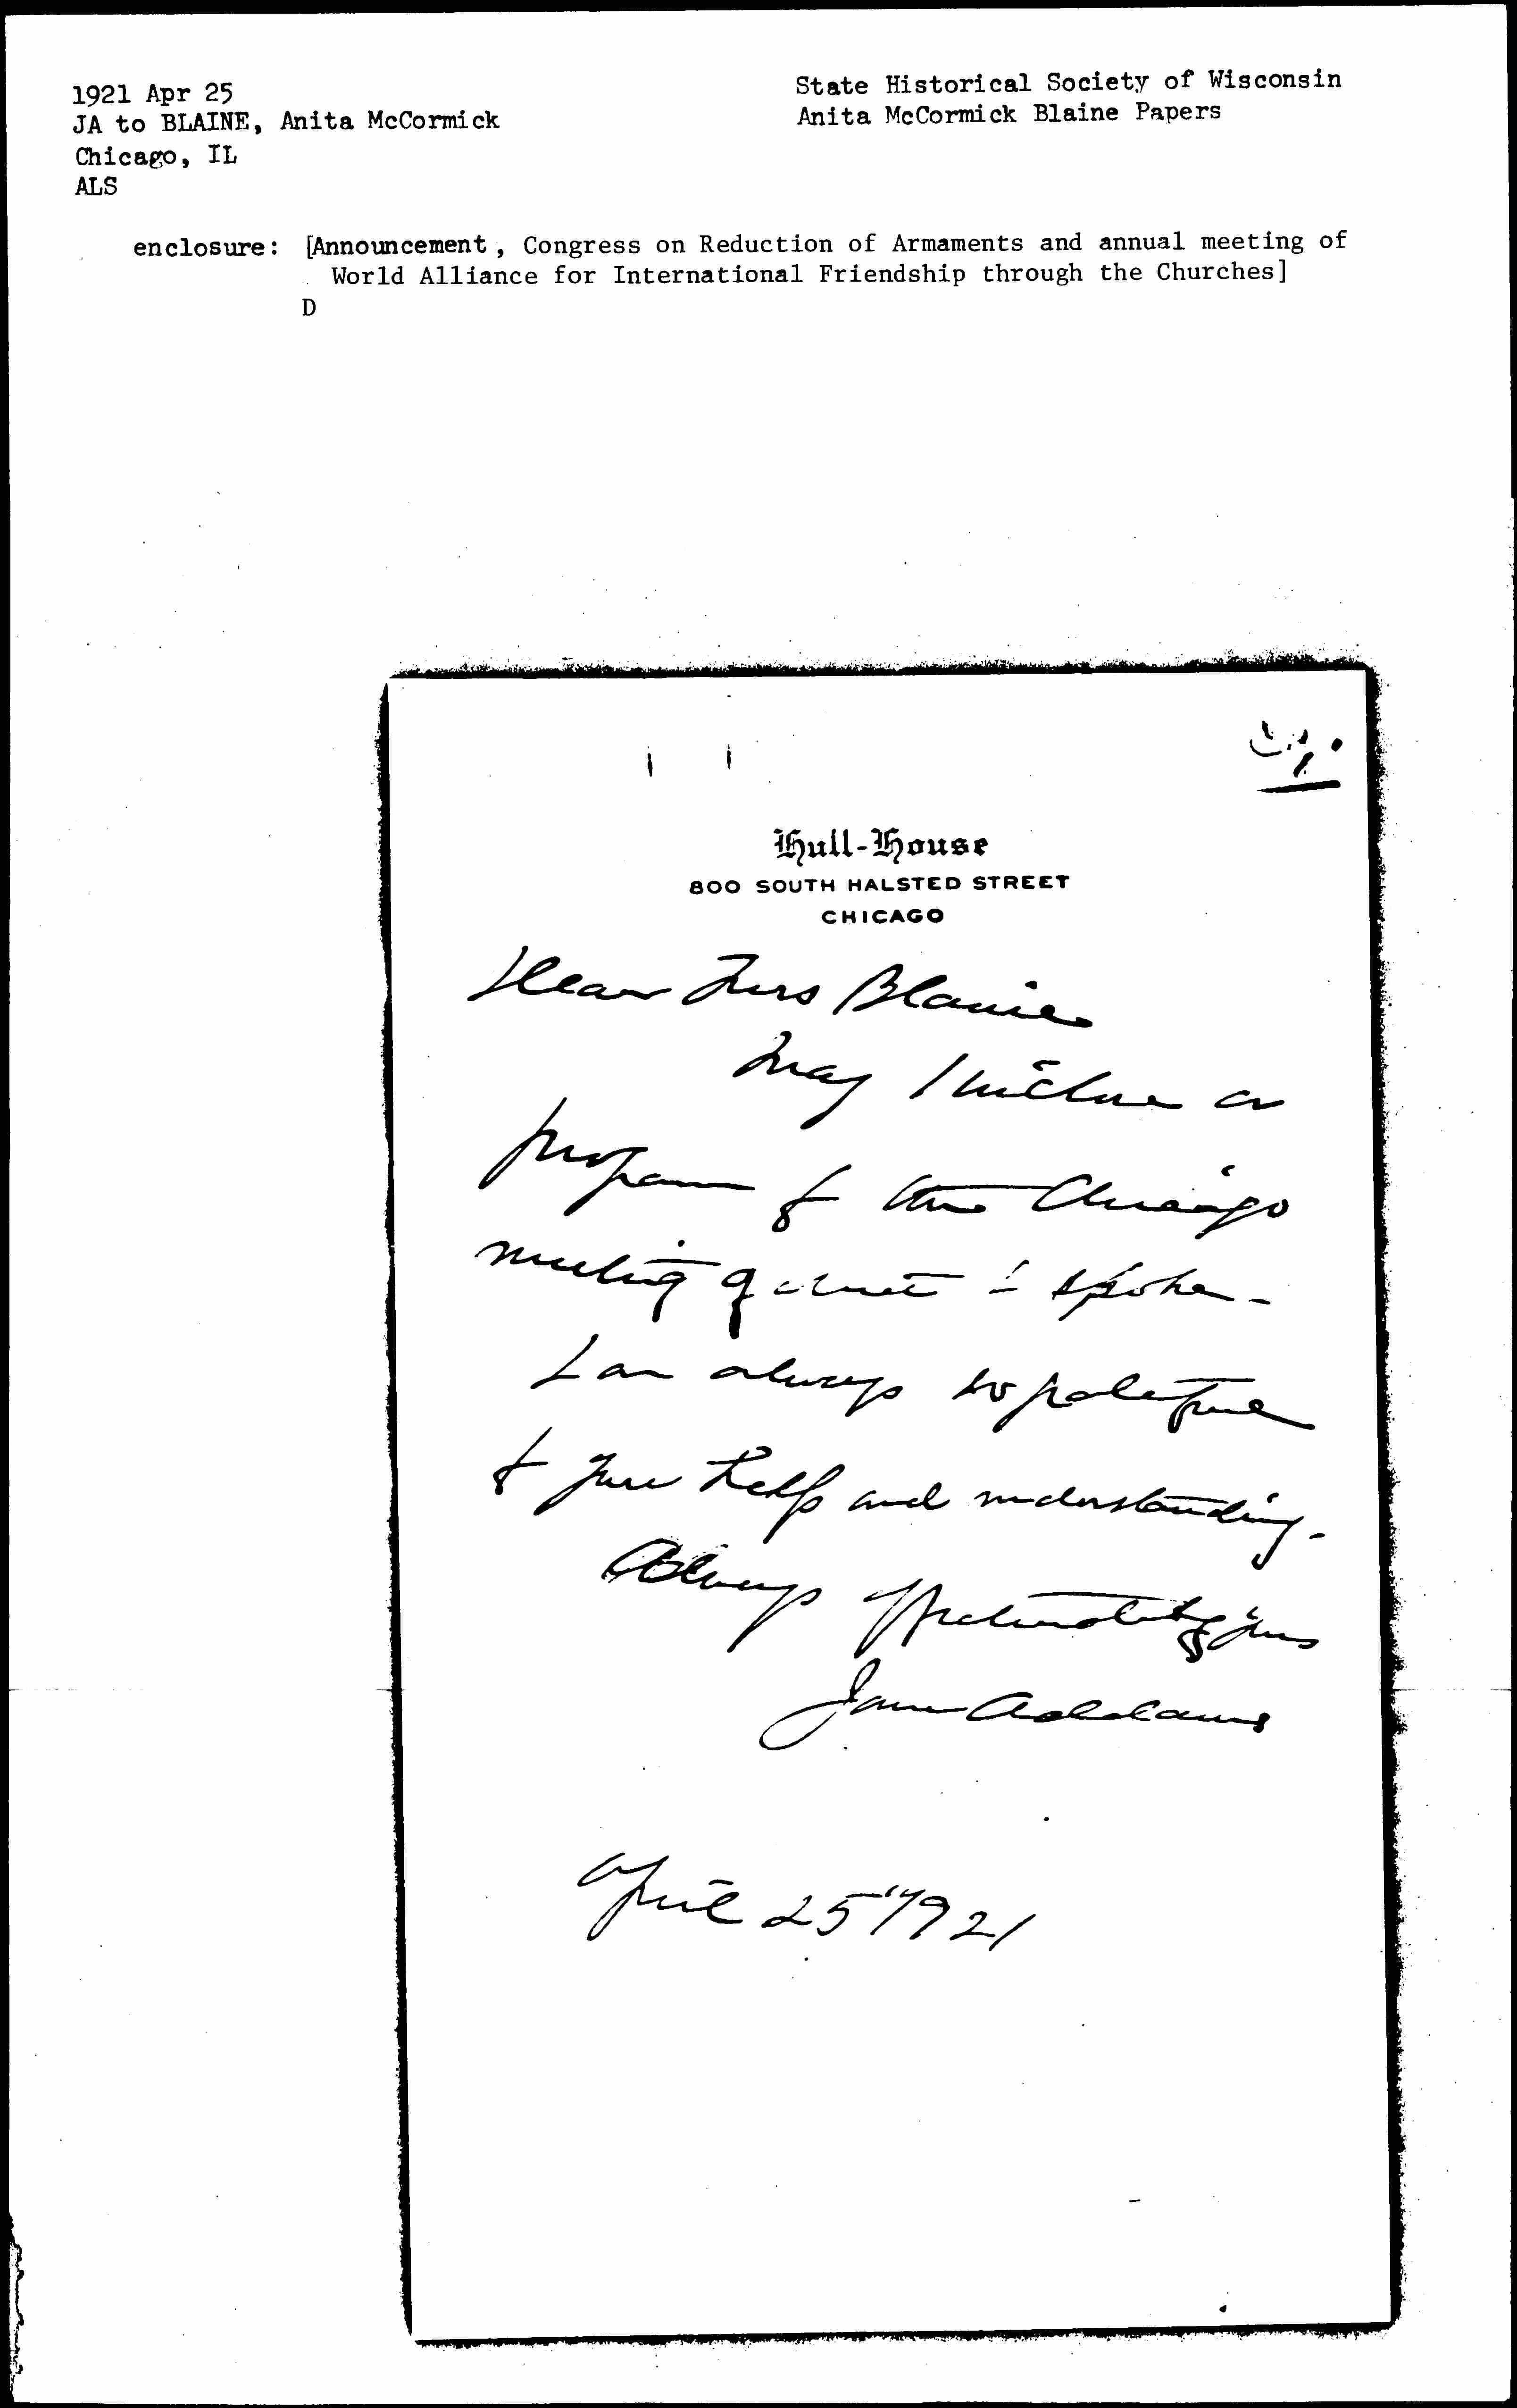 1921 Apr 25
JA to BLAINE, Anita McCormick
Chicago, IL
ALS
State Historical Society of Wisconsin
Anita McCormick Blaine Papers
enclosure: [Announcement, Congress on Reduction of Armaments and annual meeting of
World Alliance for International Friendship through the Churches]
D
Hull-House
800 SOUTH HALSTED STREET
CHICAGO
Dear Mrs Blaine
May I enclose a
program of the Chicago
meeting of which I spoke -
I am always so grateful
for your help and understanding.
Always affectionately yours
Jane Addams
April 25" 1921